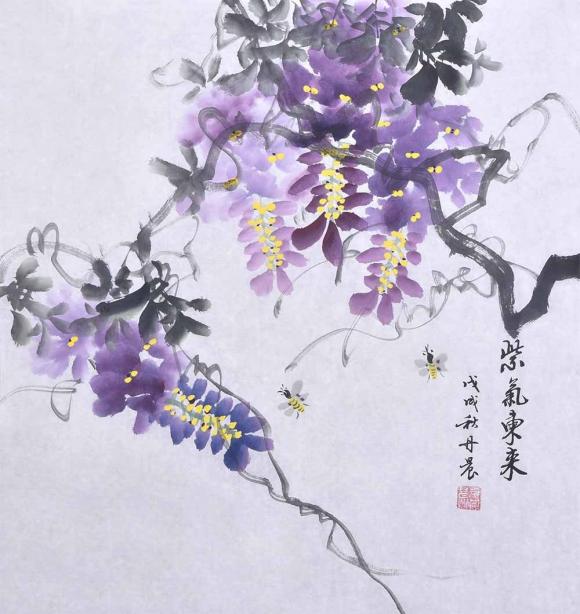 紫氣東来
戊戌秋丹晨